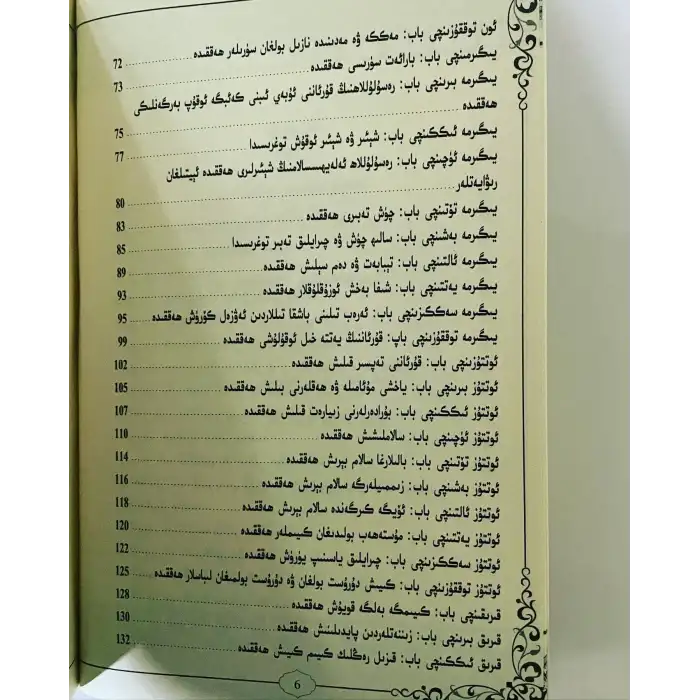 ئون توققۇزىنچى باب: مەككە ۋە مەدىندە نازىل بولغان سۈرىلەر ھەققىدە ........ 72
يىگىرمىنچى باب: بارائەت سۈرىسى ھەققىدە ........ 73
يىگىرمە بىرىنچى باب: رەسۇلۇللاھنىڭ قۇرئاننى ئۇبەي ئىبنى كەئبگە ئوقۇپ بەرگەنلىكى
ھەققىدە ........ 75
يىگىرمە ئىككىنچى باب: شېئىر ۋە شېئىر ئوقۇش توغرىسىدا ........ 77
يىگىرمە ئۈچىنچى باب: رەسۇلۇللاھ ئەلەيھىسسالامنىڭ شېئىرلىرى ھەققىدە ئېيتىلغان
رىۋايەتلەر ........ 80
يىگىرمە تۆتىنچى باب: چۈش تەبىرى ھەققىدە ........ 83
يىگىرمە بەشىنچى باب: سالىھ چۈش ۋە چىرايلىق تەبىر توغرىسىدا ........ 85
يىگىرمە ئالتىنچى باب: تېبابەت ۋە دەم سېلىش ھەققىدە ........ 89
يىگىرمە يەتتىنچى باب: شىفا بەخش ئوزۇقلۇقلار ھەققىدە ........ 93
يىگىرمە سەككىزىنچى باب: ئەرەب تىلىنى باشقا تىللاردىن ئەۋزەل كۆرۈش ھەققىدە ........ 95
يىگىرمە توققۇزىنچى باپ: قۇرئاننىڭ يەتتە خىل ئوقۇلۇشى ھەققىدە ........ 99
ئوتتۇزىنچى باب: قۇرئاننى تەپسىر قىلىش ھەققىدە ........ 102
ئوتتۇز بىرىنچى باب: ياخشى مۇئامىلە ۋە ھەقلەرنى بىلىش ھەققىدە ........ 105
ئوتتۇز ئىككىنچى باب: بۇرادەرلەرنى زىيارەت قىلىش ھەققىدە ........ 107
ئوتتۇز ئۈچىنچى باب: سالاملىشىش ھەققىدە ........ 110
ئوتتۇز تۆتىنچى باب: بالىلارغا سالام بېرىش ھەققىدە ........ 114
ئوتتۇز بەشىنچى باب: زىممىيلەرگە سالام بېرىش ھەققىدە ........ 116
ئوتتۇز ئالتىنچى باب: ئۆيگە كىرگەندە سالام بېرىش ھەققىدە ........ 118
ئوتتۇز يەتتىنچى باب: مۇستەھەب بولىدىغان كىيىملەر ھەققىدە ........ 120
ئوتتۇز سەككىزىنچى باب: چىرايلىق ياسىنىپ يۈرۈش ھەققىدە ........ 122
ئوتتۇز توققۇزىنچى باب: كىيىش دۇرۇست بولغان ۋە دۇرۇست بولمىغان لىباسلار ھەققىدە ........ 125
قىرىقىنچى باب: كىيىمگە بەلگە قويۇش ھەققىدە ........ 128
قىرىق بىرىنچى باب: زىننەتلەردىن پايدىلىنىش ھەققىدە ........ 130
قىرىق ئىككىنچى باب: قىزىل رەڭلىك كىيىم كىيىش ھەققىدە ........ 132
6